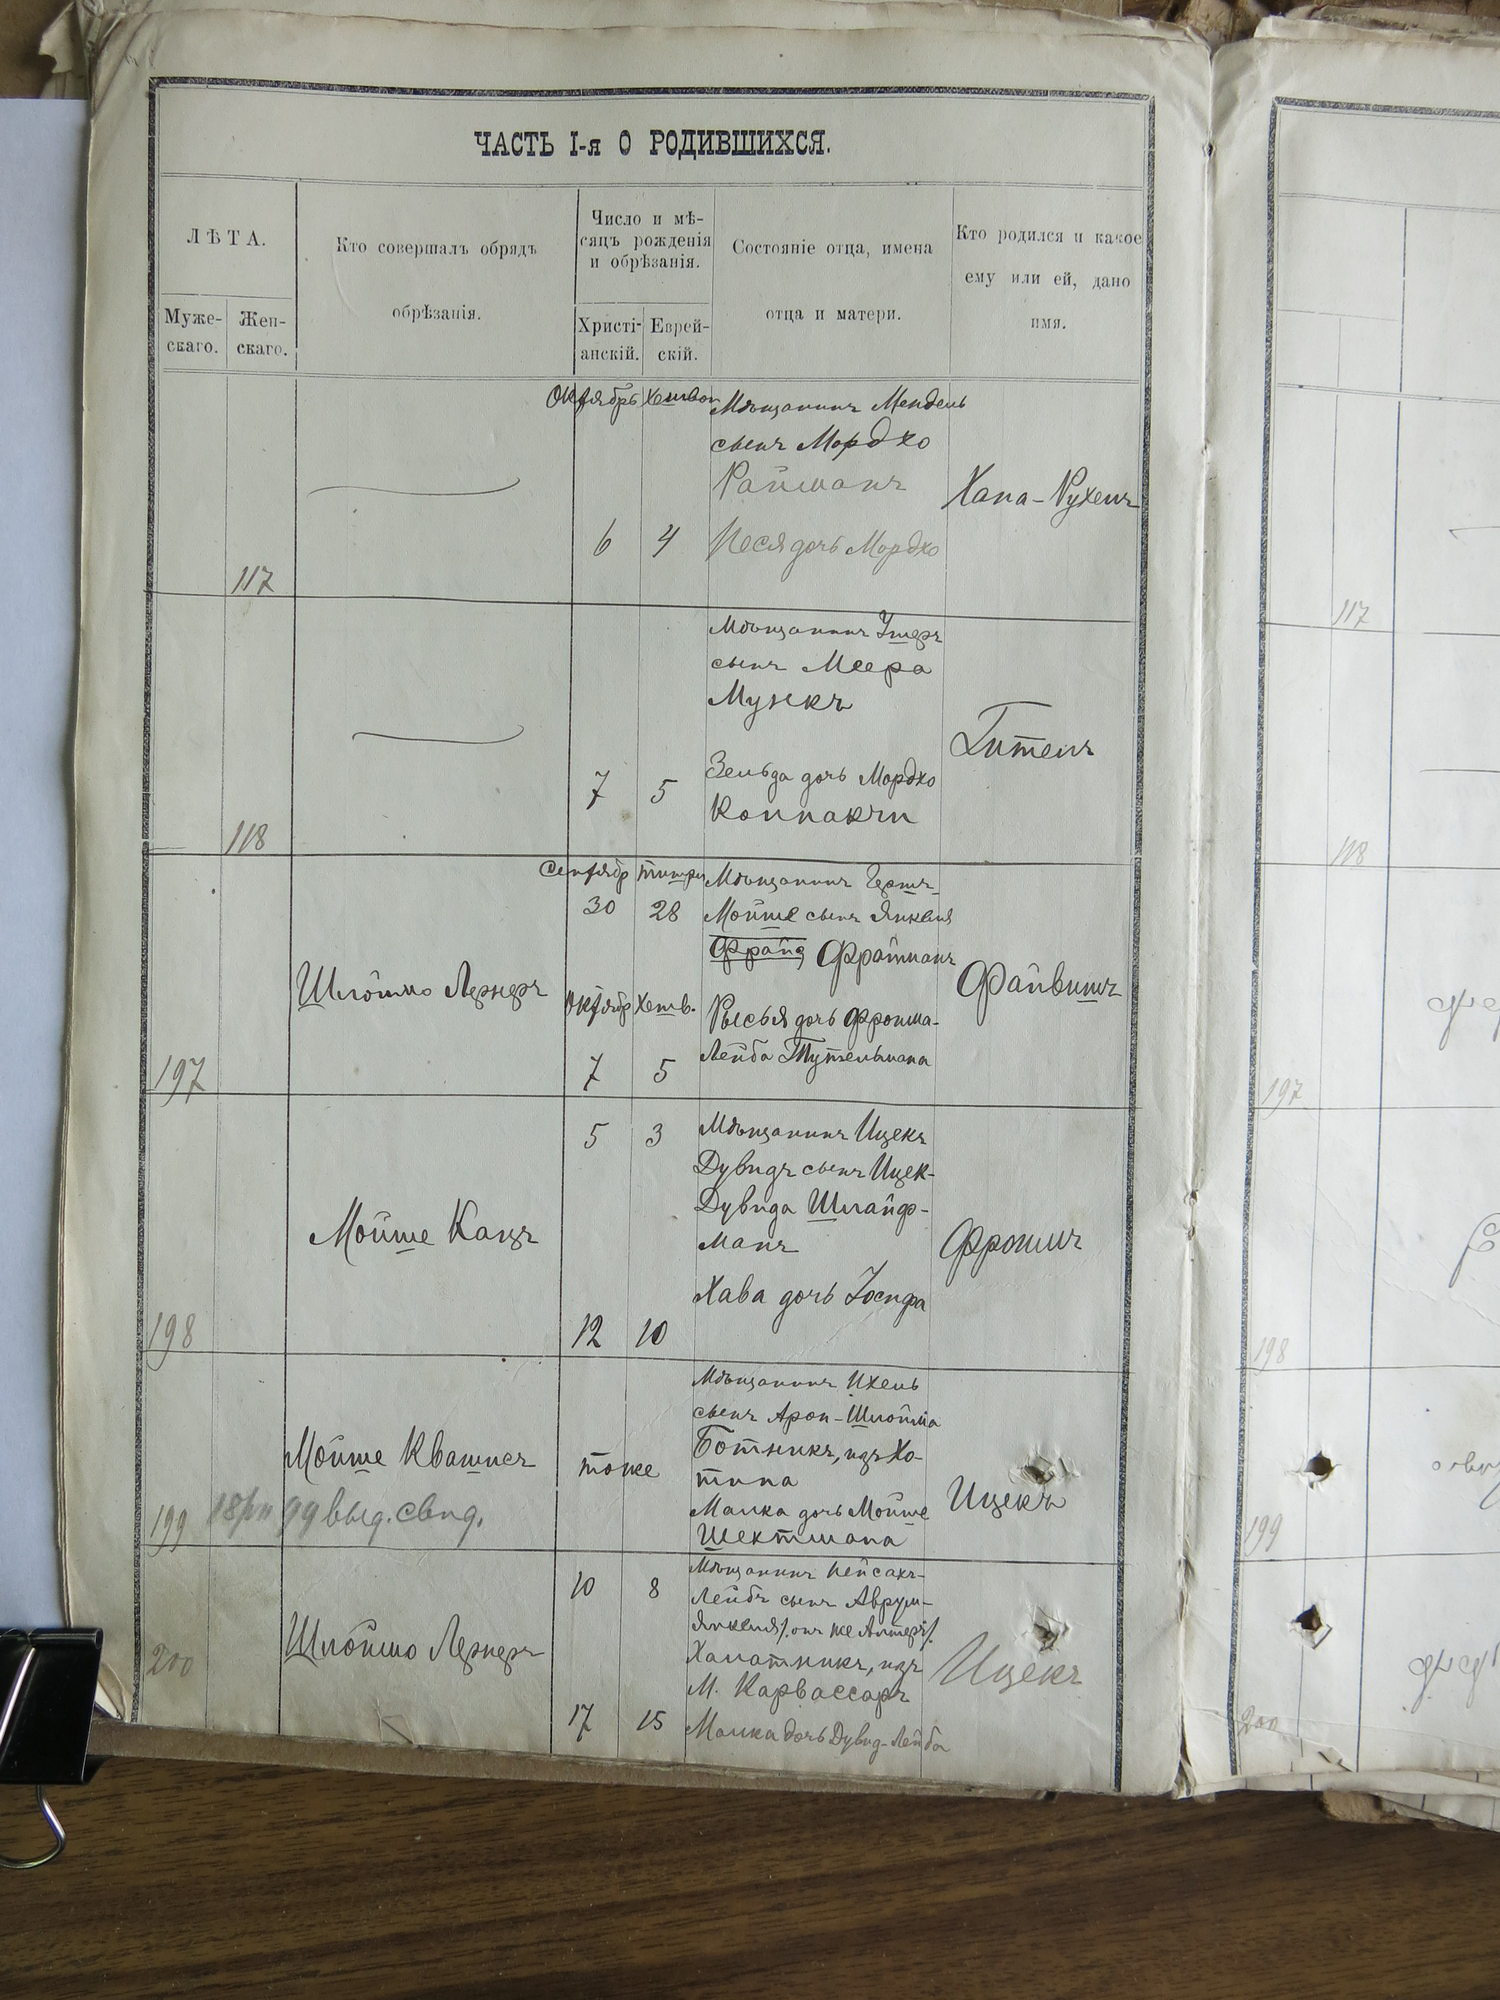 ЧАСТЬ I-я О РОДИВШИХСЯ.
ЛѢТА.
Муже-
скаго.
Жен-
скаго.
Кто совершалъ обрядъ
обрѣзанія.
Число и мѣ-
сяцъ рожденія
и обрѣзанія.
Христі-
анскій.
Еврей-
скій.
Состояніе отца, имена
отца и матери.
Кто родился и какое
ему или ей, дано
имя.
117
Октябрь Хешвон
6 4
Мѣщанинъ Мендель
сынъ Мордко
Райшанъ
Песя дочь Мордко
Хана-Рухель
118
7 5
Мѣщанинъ Ушеръ
сынъ Меера
Музикъ
Зельда дочь Мордко
Колпакчи
Гитель
197
Шлоймо Лернеръ
Сентябр Тишри
30 28
Октябр Хешв.
7 5
Мѣщанинъ Гершъ-
Мойше сынъ Янкеля
Фрайд Фрайманъ
Рысья дочь Фроима-
Лейба Тутельмана
Файвишъ
198
Мойше Кацъ
5 3
12 10
Мѣщанинъ Ицекъ
Дувидъ сынъ Ицек-
Дувида Шлайф-
манъ
Хава дочь Іосифа
Фроимъ
199
Мойше Квашнеъ
99 выд. свид.
тоже
Мѣщанинъ Ихель
сынъ Арон-Шлойма
Ботникъ, изъ Хо-
тина
Малка дочь Мойше
Шехтмана
Ицекъ
200
Шлоймо Лернеръ
10 8
17 15
Мѣщанинъ Пейсахъ-
Лейбъ сынъ Аврум-
Янкеля /. онъ же Алтеръ/.
Халатникъ, изъ
М. Карвассаръ
Малка дочь Дувид-Лейба
Ицекъ
117
118
197
198
199
200